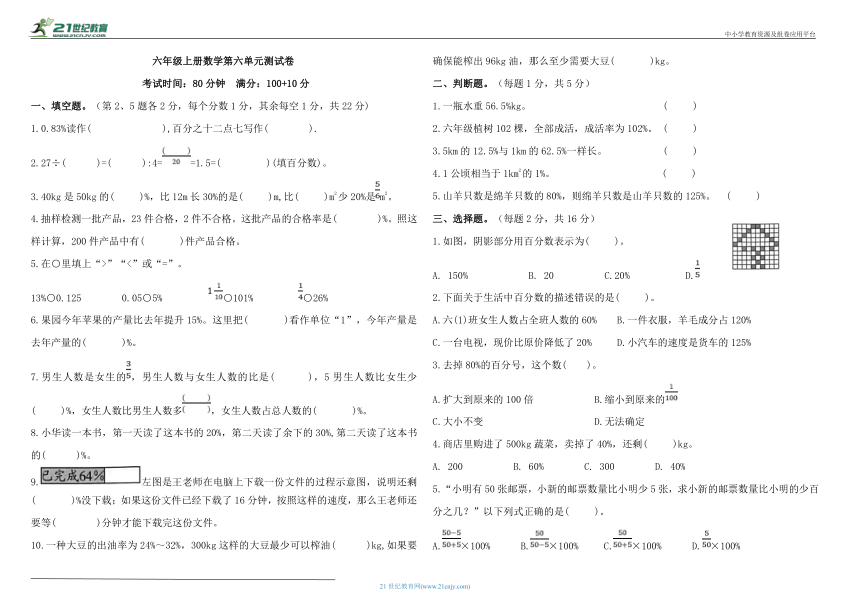 21世纪教育
www.21cnjy.com
中小学教育资源及组卷应用平台
六年级上册数学第六单元测试卷
考试时间：80分钟 满分：100+10分
一、填空题。（第2、5题各2分，每个分数1分，其余每空1分，共22分)
1.0.83%读作( ),百分之十二点七写作( ).
2.27÷( )=( ):4=( )/20=1.5=( )(填百分数)。
3.40kg是50kg的( )%，比12m长30%的是( )m,比( )m²少20%是5/6m²。
4.抽样检测一批产品，23件合格，2件不合格。这批产品的合格率是( )%。照这
样计算，200件产品中有( )件产品合格。
5.在○里填上“>”“<”或“=”。
13%○0.125 0.05○5% 1 1/10○101% 1/4○26%
6.果园今年苹果的产量比去年提升15%。这里把( )看作单位“1”，今年产量是
去年产量的( )%。
7.男生人数是女生的3/5,男生人数与女生人数的比是( )，5男生人数比女生少
( )%,女生人数比男生人数多( )/( ),女生人数占总人数的( )%。
8.小华读一本书，第一天读了这本书的20%，第二天读了余下的30%,第二天读了这本书
的( )%。
9.已完成64% 左图是王老师在电脑上下载一份文件的过程示意图，说明还剩
( )%没下载；如果这份文件已经下载了16分钟，按照这样的速度，那么王老师还
要等( )分钟才能下载完这份文件。
10.一种大豆的出油率为24%～32%，300kg这样的大豆最少可以榨油( )kg,如果要
确保能榨出96kg油，那么至少需要大豆( )kg。
二、判断题。（每题1分，共5分）
1.一瓶水重56.5%kg。 ( )
2.六年级植树102棵，全部成活，成活率为102%。 ( )
3.5km的12.5%与1km的62.5%一样长。 ( )
4.1公顷相当于1km²的1%。 ( )
5.山羊只数是绵羊只数的80%，则绵羊只数是山羊只数的125%。 ( )
三、选择题。（每题2分，共16分）
1.如图，阴影部分用百分数表示为( )。
A. 150% B. 20 C.20% D.1/5
2.下面关于生活中百分数的描述错误的是( )。
A.六(1)班女生人数占全班人数的60% B.一件衣服，羊毛成分占120%
C.一台电视，现价比原价降低了20% D.小汽车的速度是货车的125%
3.去掉80%的百分号，这个数( )。
A.扩大到原来的100倍 B.缩小到原来的1/100
C.大小不变 D.无法确定
4.商店里购进了500kg蔬菜，卖掉了40%，还剩( )kg。
A. 200 B. 60% C. 300 D. 40%
5.“小明有50张邮票，小新的邮票数量比小明少5张，求小新的邮票数量比小明的少百
分之几？”以下列式正确的是( )。
A.50−5/50+5×100% B.50/50−5×100% C.50/50+5×100% D.5/50×100%
21世纪教育网(www.21cnjy.com)